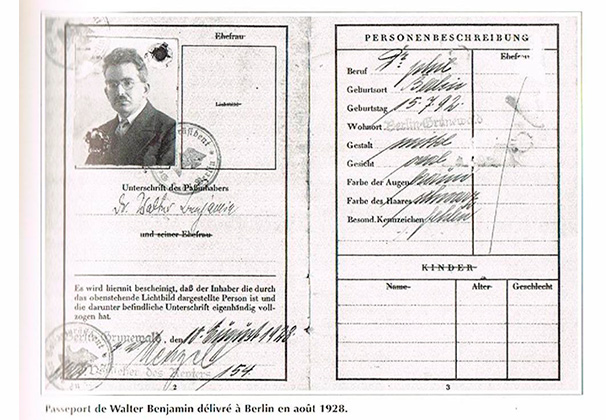 Ehefrau
Lichtbild
Unterschrift des Paßinhabers
Dr. Walter Benjamin
und seiner Ehefrau
Es wird hiermit bescheinigt, daß der Inhaber die durch
das obenstehende Lichtbild dargestellte Person ist und
die darunter befindliche Unterschrift eigenhändig voll-
zogen hat.
Berlin-Grunewald, den 10. August 1928
154
2
PERSONENBESCHREIBUNG
Ehefrau
Beruf Dr. phil
Geburtsort Berlin
Geburtstag 15.7.92.
Wohnort Berlin-Grunewald
Gestalt mittel
Gesicht oval
Farbe der Augen braun
Farbe des Haares schwarz
Besond. Kennzeichen fehlen
KINDER
Name Alter Geschlecht
3
Passeport de Walter Benjamin délivré à Berlin en août 1928.